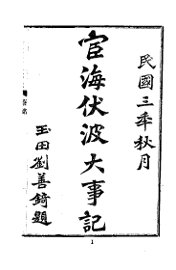 民國三年秋月
宦海伏波大事記
玉田劉善錡題
1